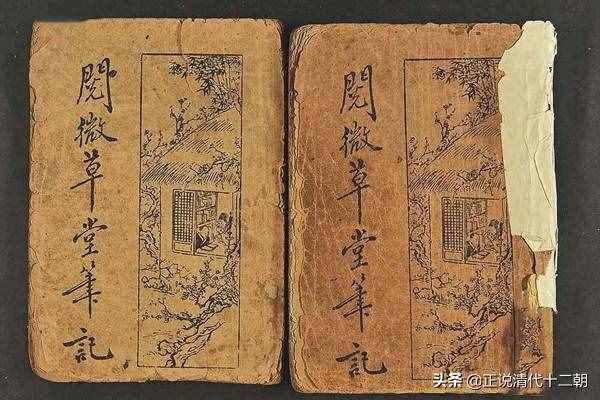 閱微草堂筆記
閱微草堂筆記
头条 @正说清代十二朝